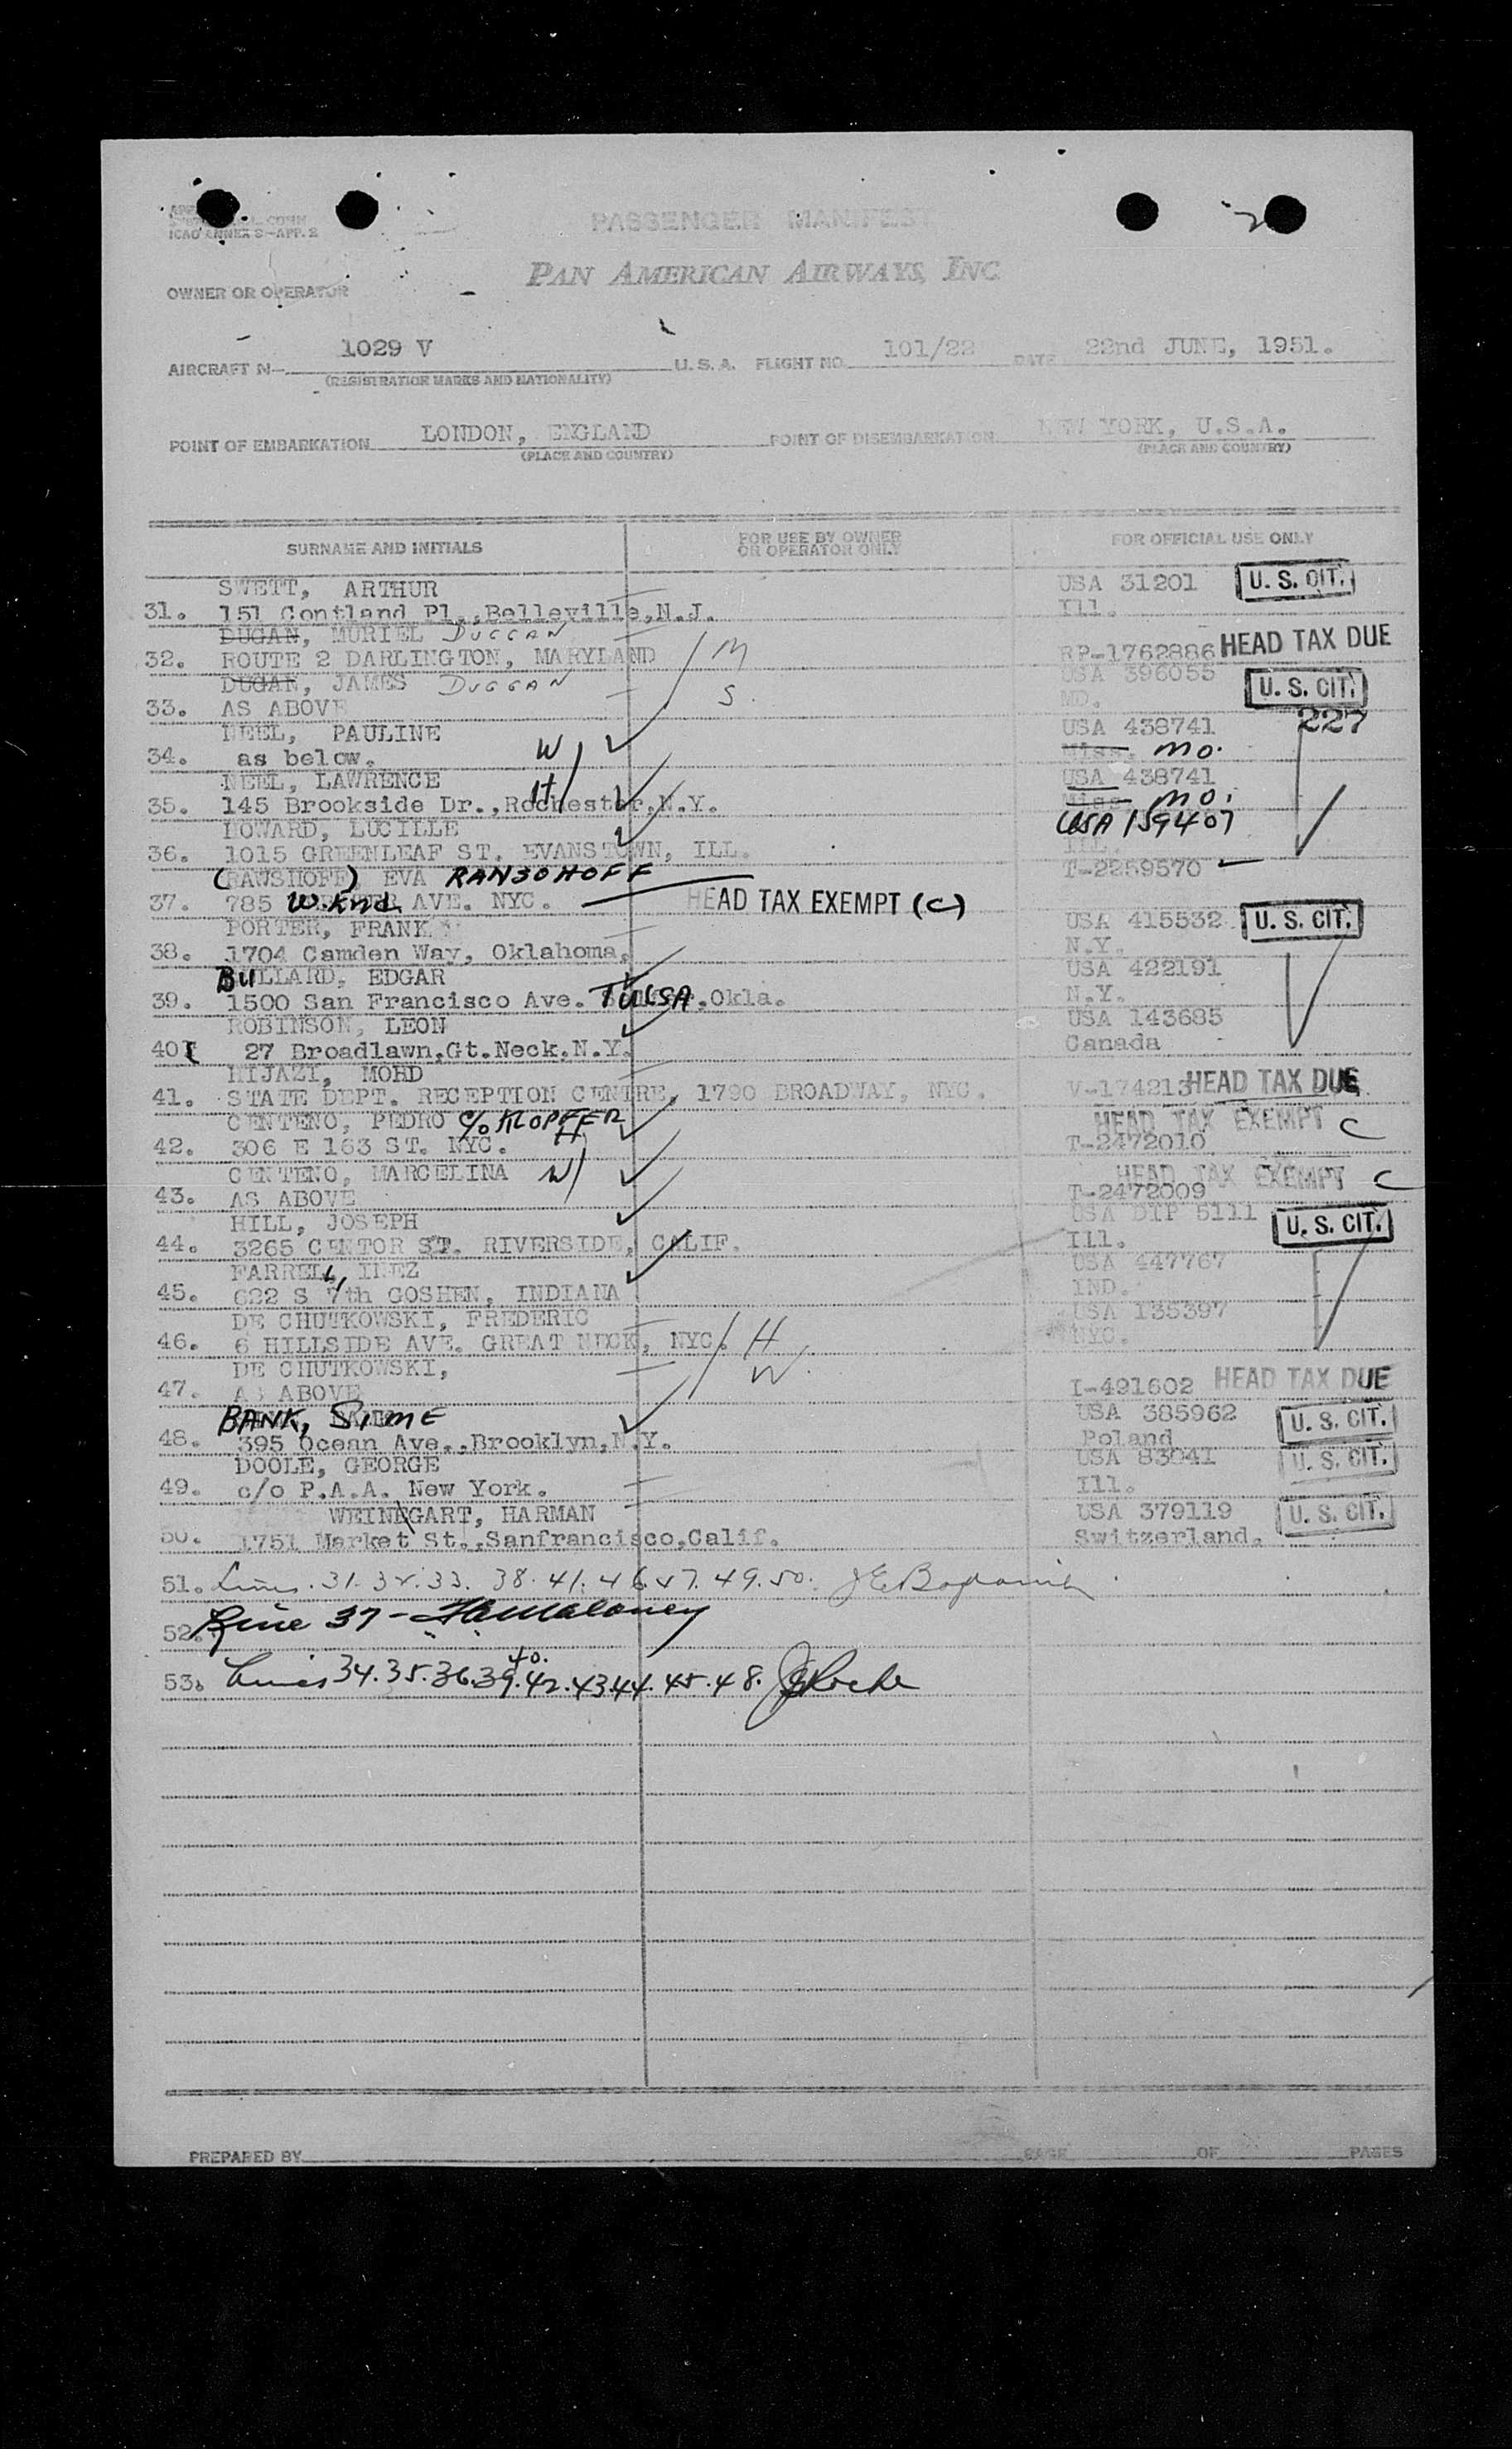 ICAO ANNEX 9-APP. 2
PASSENGER MANIFEST
PAN AMERICAN AIRWAYS, INC
OWNER OR OPERATOR
AIRCRAFT N- 1029 V U. S. A. FLIGHT NO. 101/22 DATE 22nd JUNE, 1951.
(REGISTRATION MARKS AND NATIONALITY)
POINT OF EMBARKATION LONDON, ENGLAND POINT OF DISEMBARKATION NEW YORK, U.S.A.
(PLACE AND COUNTRY) (PLACE AND COUNTRY)
SURNAME AND INITIALS FOR USE BY OWNER OR OPERATOR ONLY FOR OFFICIAL USE ONLY
SWETT, ARTHUR USA 31201 U. S. CIT.
31. 151 Contland Pl.,Belleville,N.J. Ill.
DUGAN, MURIEL DUGGAN
32. ROUTE 2 DARLINGTON, MARYLAND M RP-1762886 HEAD TAX DUE
DUGAN, JAMES DUGGAN S USA 396055 U. S. CIT.
33. AS ABOVE MD.
NEEL, PAULINE USA 438741 227
34. as below. W Miss. Mo.
NEEL, LAWRENCE H USA 438741
35. 145 Brookside Dr.,Rochester,N.Y. Miss. Mo.
HOWARD, LUCILLE USA 159407
36. 1015 GREENLEAF ST. EVANSTOWN, ILL. ILL.
(RAWSHOFF) EVA RANSOHOFF T-2259570
37. 785 W. End AVE. NYC. HEAD TAX EXEMPT (C)
PORTER, FRANK USA 415532 U. S. CIT.
38. 1704 Camden Way, Oklahoma. N.Y.
BULLARD, EDGAR USA 422191
39. 1500 San Francisco Ave. TULSA.Okla. N.Y.
ROBINSON, LEON USA 143685
40. 27 Broadlawn.Gt.Neck.N.Y. Canada
HIJAZI, MOHD
41. STATE DEPT. RECEPTION CENTRE, 1790 BROADWAY, NYC. V-174213 HEAD TAX DUE
CENTENO, PEDRO C/o KLOPFER HEAD TAX EXEMPT C
42. 306 E 163 ST. NYC. H T-2472010
CENTENO, MARCELINA W HEAD TAX EXEMPT C
43. AS ABOVE T-2472009
HILL, JOSEPH USA DIP 5111 U. S. CIT.
44. 3265 CENTOR ST. RIVERSIDE, CALIF. Ill.
FARRELL, INEZ USA 447767
45. 622 S 7th GOSHEN, INDIANA IND.
DE CHUTKOWSKI, FREDERIC USA 135397
46. 6 HILLSIDE AVE. GREAT NECK, NYC. H NYC.
DE CHUTKOWSKI, W
47. AS ABOVE I-491602 HEAD TAX DUE
BANK, SIME USA 385962 U. S. CIT.
48. 395 Ocean Ave.,Brooklyn,N.Y. Poland
DOOLE, GEORGE USA 83041 U. S. CIT.
49. c/o P.A.A. New York. Ill.
WEINGART, HARMAN USA 379119 U. S. CIT.
50. 1751 Market St.,Sanfrancisco,Calif. Switzerland.
51. Lines. 31. 32. 33. 38. 41. 46. 47. 49. 50.
52. Line 37 - Maloney
40.
53. Lines 34. 35. 36. 39. 42. 43. 44. 45. 48. Roche
PREPARED BY PAGE OF PAGES